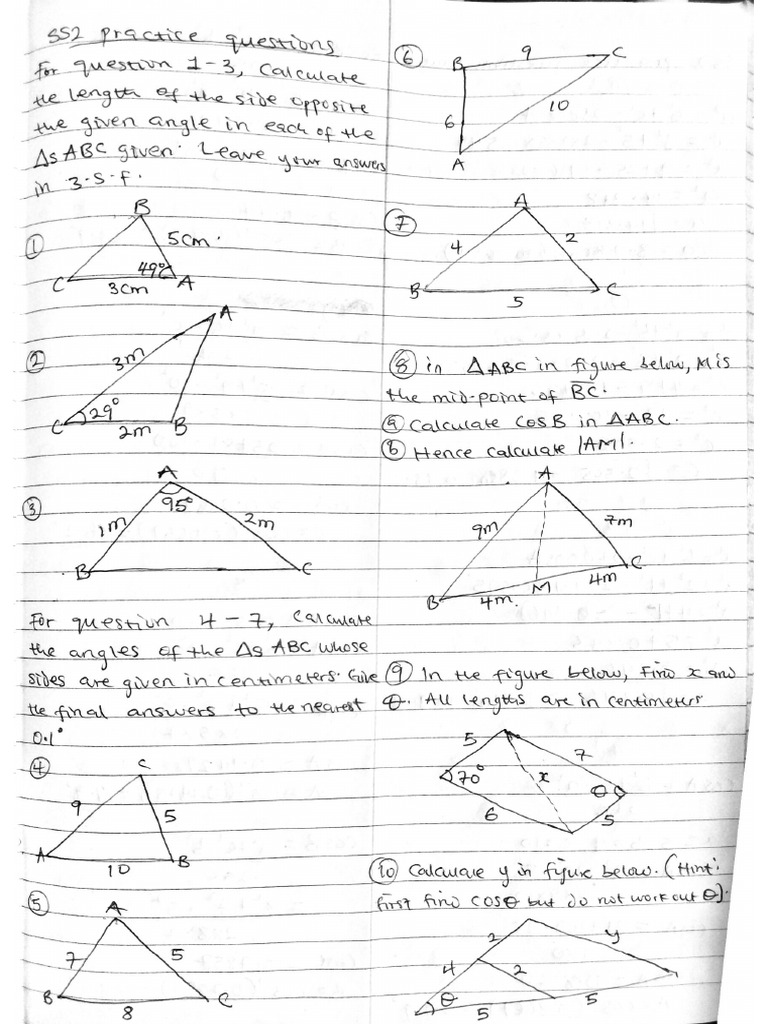 SS2 practice questions
For question 1-3, Calculate
the length of the side opposite
the given angle in each of the
Δs ABC given. Leave your answers
in 3.s.f.
①
B
5cm.
49°
C
3cm
A
②
A
3m
29°
C
2m
B
③
A
95°
1m
2m
B
C
For question 4-7, Calculate
the angles of the Δs ABC whose
sides are given in centimeters. Give
the final answers to the nearest
0.1°
④
C
9
5
A
10
B
⑤
A
7
5
B
8
C
⑥
B
9
C
6
10
A
⑦
A
4
2
B
5
C
⑧ in ΔABC in figure below, M is
the mid-point of BC.
ⓐ Calculate CosB in ΔABC.
ⓑ Hence calculate |AM|.
A
9m
7m
C
B
4m.
M
4m
⑨ In the figure below, Find x and
θ. All lengths are in centimeters
5
7
70°
x
θ
6
5
⑩ Calculate y in fijure below. (Hint:
First find cosθ but do not work out θ).
2
y
4
2
θ
5
5